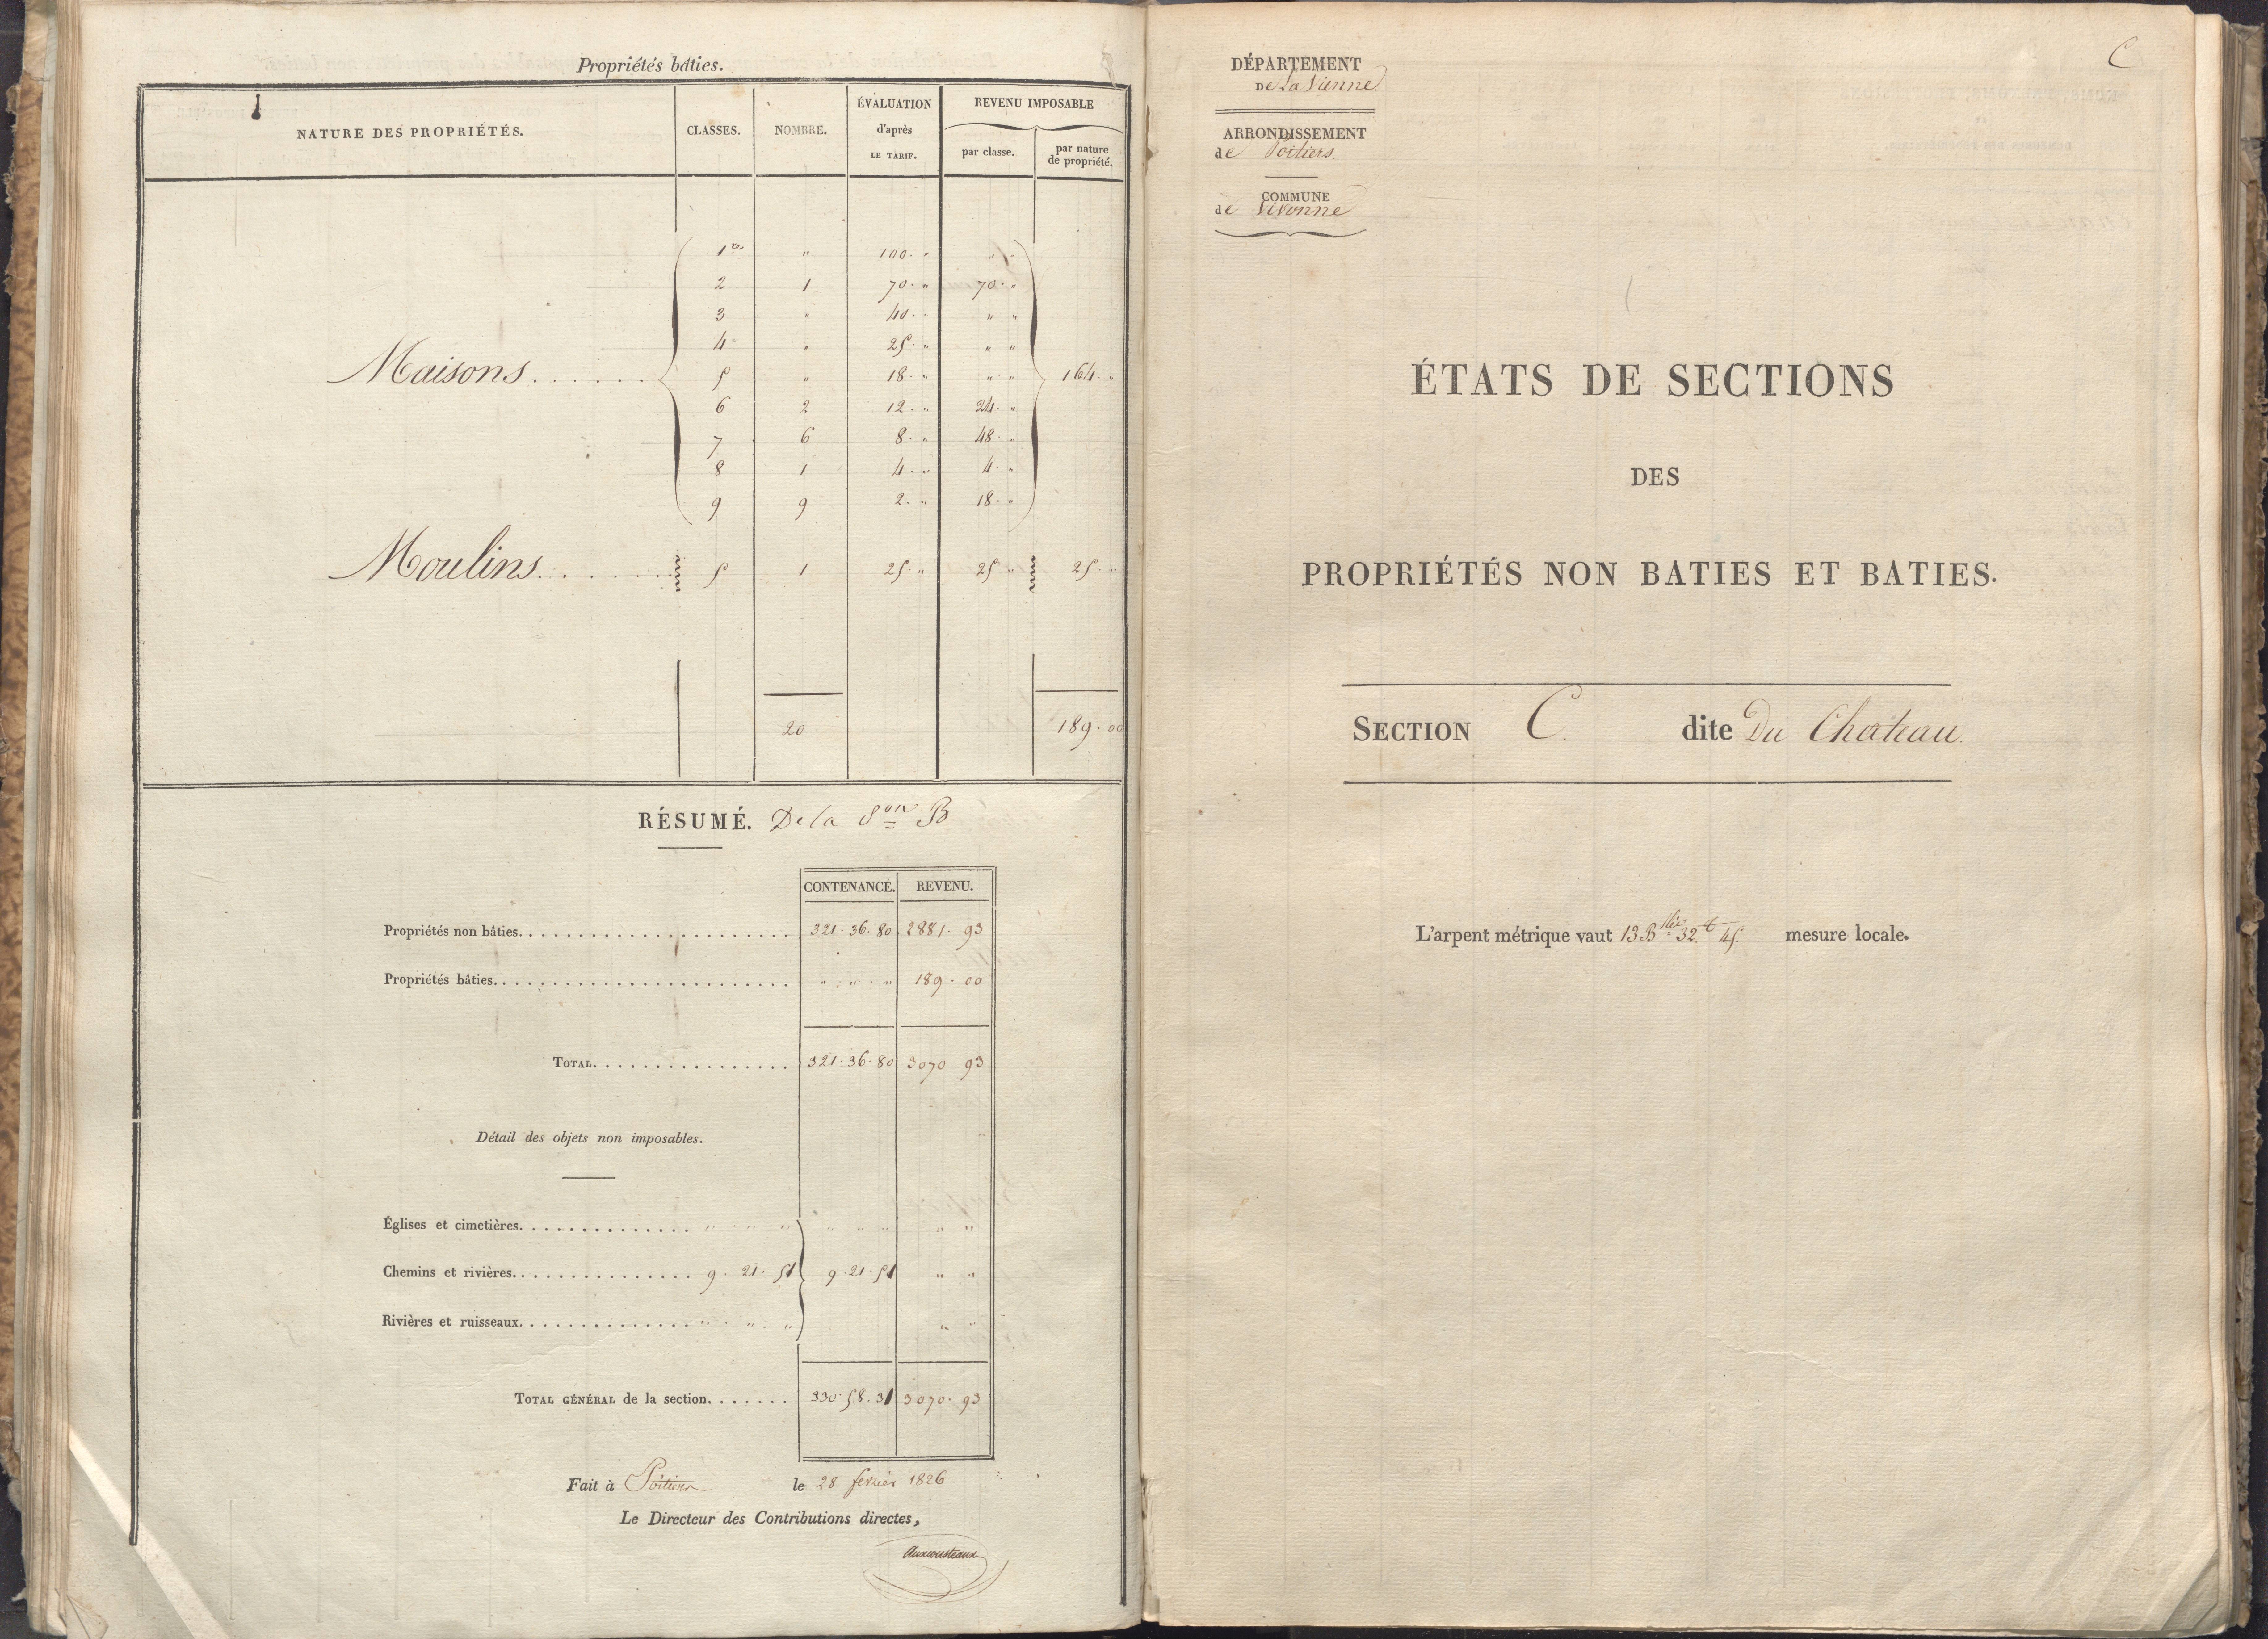 Propriétés bâties.
NATURE DES PROPRIÉTÉS. CLASSES. NOMBRE. ÉVALUATION d'après LE TARIF. REVENU IMPOSABLE par classe. par nature de propriété.
1re " 100. " " "
2 1 70. " 70. "
3 " 40. " " "
4 " 25. " " "
Maisons...... 5 " 18. " " " 164. "
6 2 12. " 24. "
7 6 8. " 48. "
8 1 4. " 4. "
9 9 2. " 18. "
Moulins...... 5 1 25. " 25 " 25. "
20 189. 00
RÉSUMÉ. De la Son B
CONTENANCE. REVENU.
Propriétés non bâties. 321. 36. 80 2881. 93
Propriétés bâties. " . " . " 189. 00
TOTAL. 321. 36. 80 3070 93
Détail des objets non imposables.
Églises et cimetières. " " " " " " " "
Chemins et rivières. 9. 21. 51 9. 21. 51 " "
Rivières et ruisseaux. " . " . " " "
TOTAL GÉNÉRAL de la section. 330. 58. 31 3070. 93
Fait à Poitiers le 28 fevrier 1826
Le Directeur des Contributions directes,
Auxcousteaux
C
DÉPARTEMENT
DE La Vienne
ARRONDISSEMENT
de Poitiers
COMMUNE
de Vivonne
ÉTATS DE SECTIONS
DES
PROPRIÉTÉS NON BATIES ET BATIES.
SECTION C. dite Du Chateau.
L'arpent métrique vaut 13 B lée 32. c 45. mesure locale.